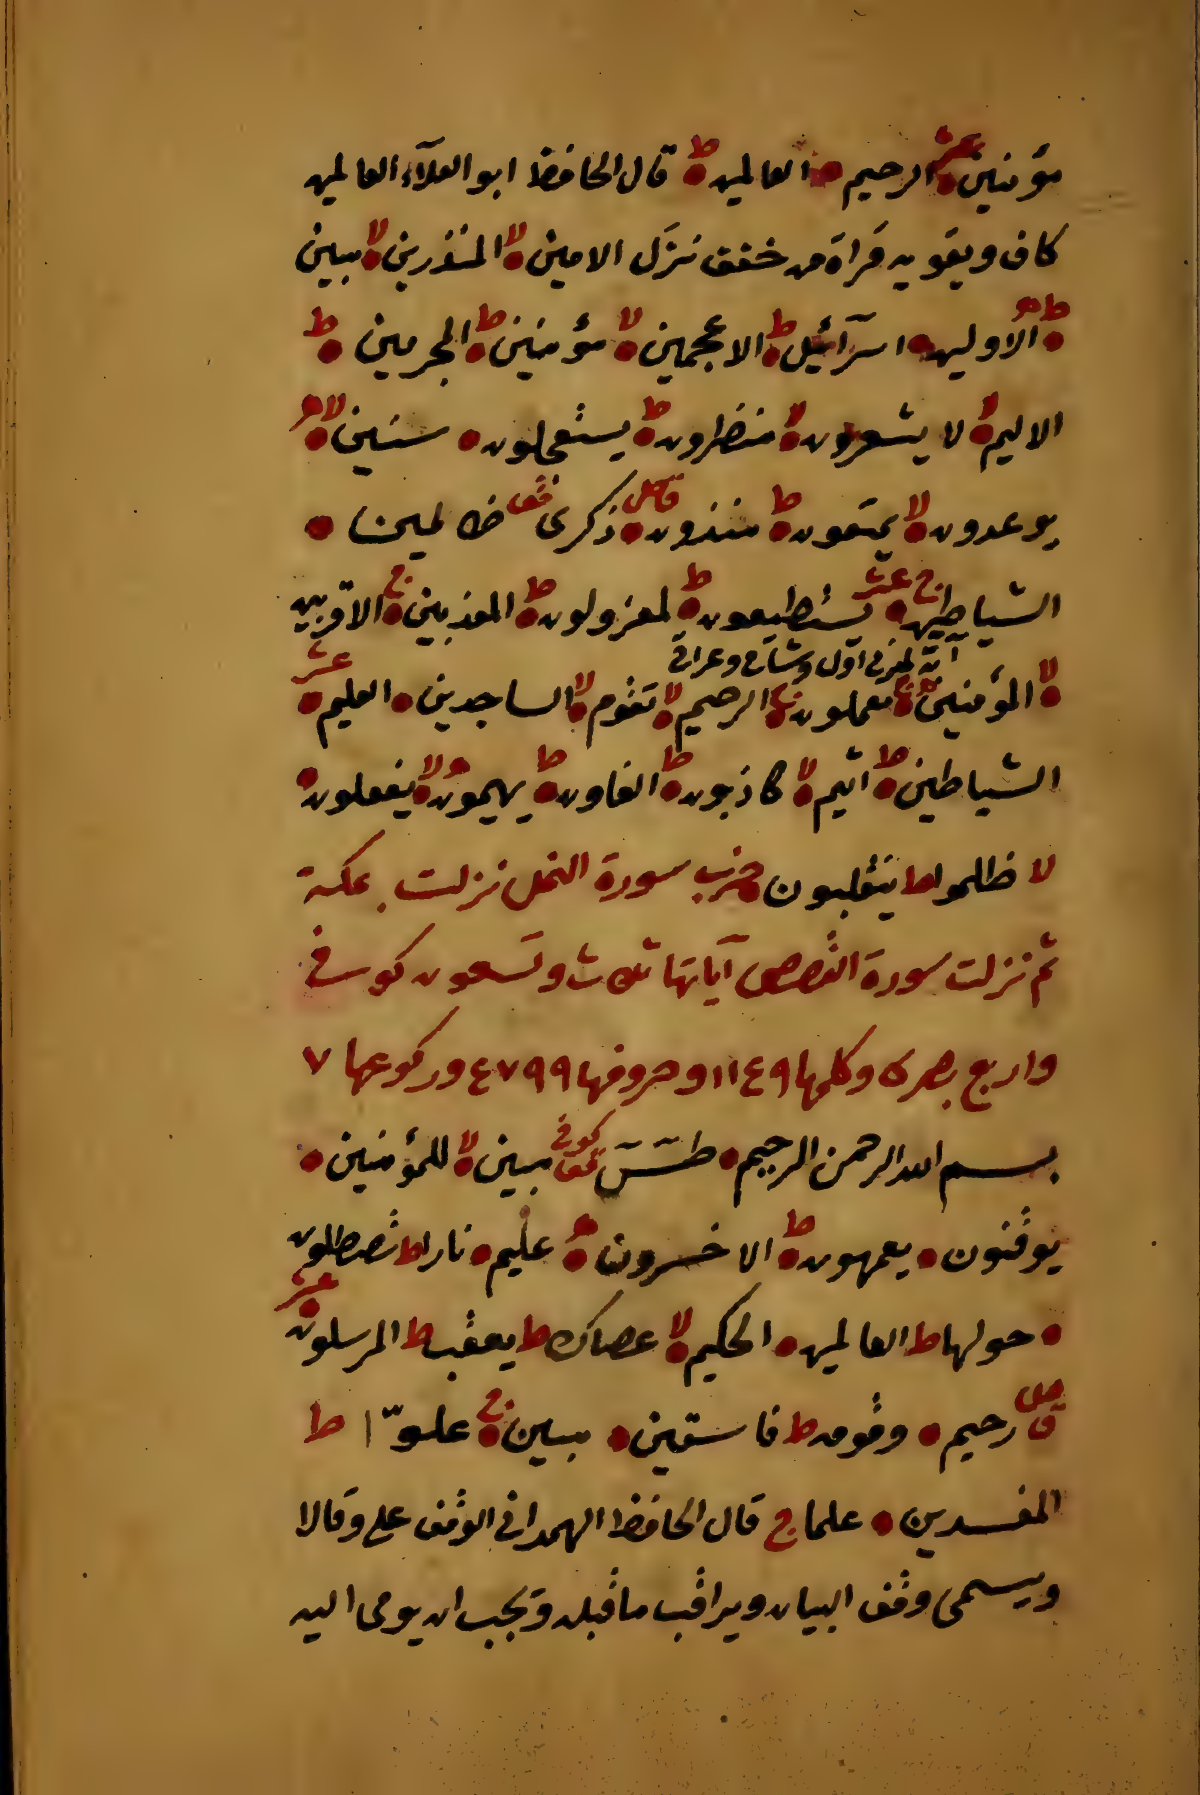 مؤمنين عشر الرحيم العالمين ط قال الحافظ ابو العلآء العالمين
كاف ويقويه قراة من خفف نزل الامين لا المنذرين لا مبين
ط الاولين اسرآئيل ط الاعجمين لا مؤمنين ط المجرمين ط
الاليم لا لا يشعرون لا منظرون ط يستعجلون سنين لا
يوعدون لا يمتعون ط منذرون ذكرى ظالمين
الشياطين ج عشر يستطيعون ط لمعزولون ط المعذبين ج الاقربين
آية وشامي وعراقي
لا المؤمنين ج تعملون لا الرحيم لا تقوم لا الساجدين العليم عشر
الشياطين ط اثيم لا كاذبون ط الغاون ط يهيمون لا يفعلون
لا ظلموا ط ينقلبون حزب سورة النمل نزلت بمكة
ثم نزلت سورة القصص آياتها ثلث وتسعون كوفي
واربع بصرى وكلمها ١١٤٩ وحروفها ٤٧٩٩ وركوعها ٧
بسم الله الرحمن الرحيم طسٓ كوفي مبين لا للمؤمنين
يوقنون يعمهون ط الاخسرون عليم نارا ط تصطلون
حولها ط العالمين الحكيم لا عصاك ط يعقب ط المرسلون عشر
رحيم وقومه ط فاسقين مبين ج علوّا ط
المفسدين علما ج قال الحافظ الهمداني الوقف على وقالا
ويسمى وقف البيان ويراقب ما قبله ويجب ان يومى اليه